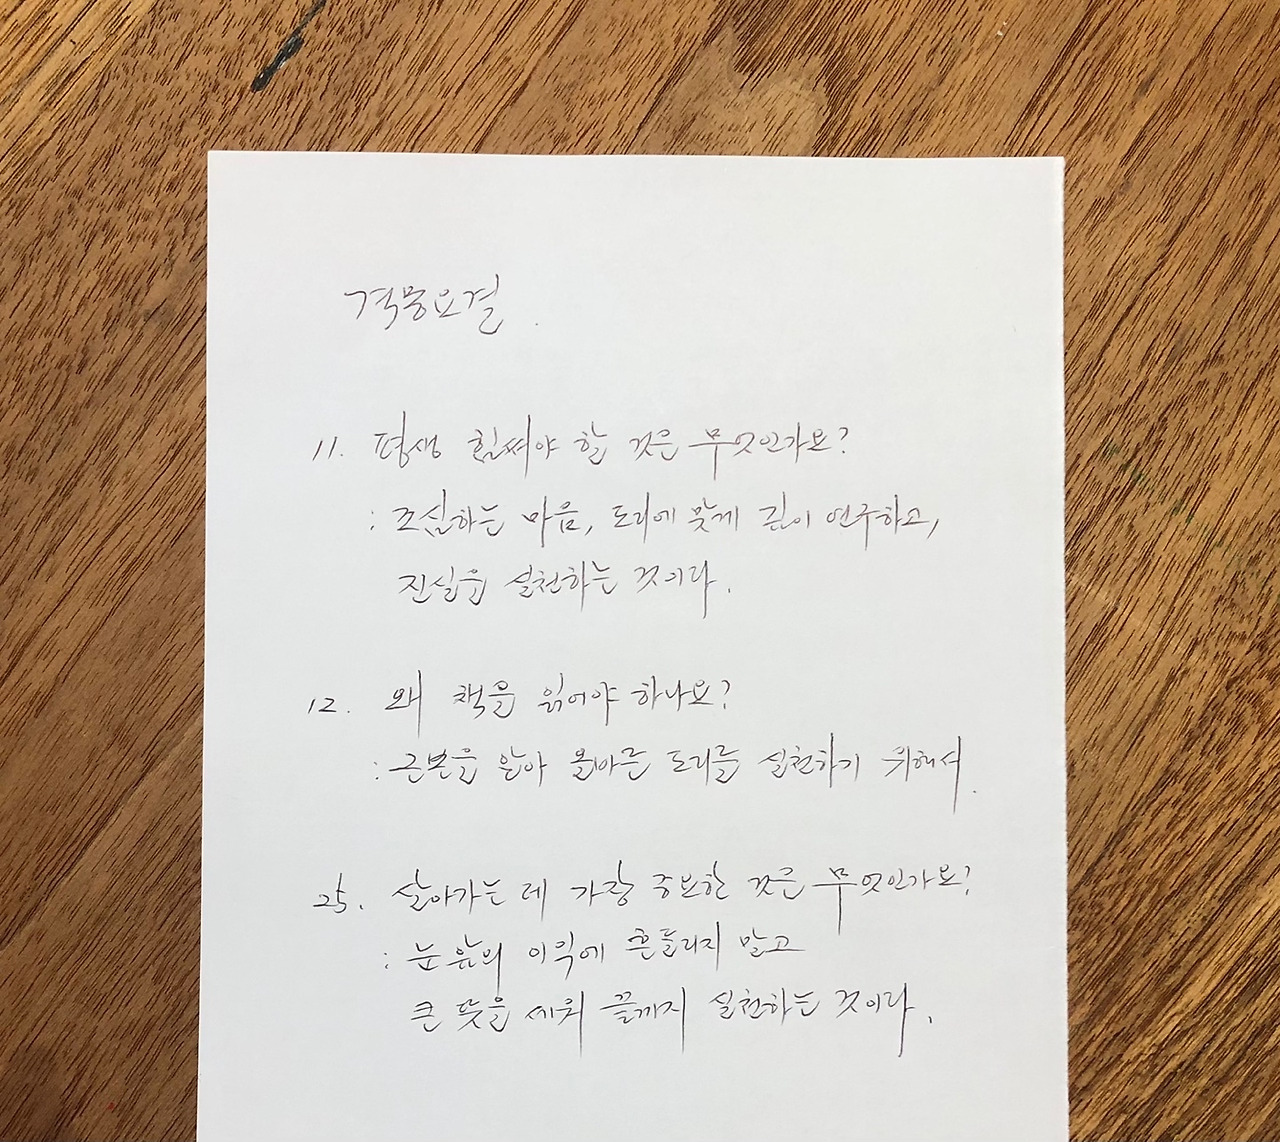 격몽요결.
11. 평생 힘써야 할 것은 무엇인가요?
: 조심하는 마음, 도리에 맞게 깊이 연구하고,
진실을 실천하는 것이다.
12. 왜 책을 읽어야 하나요?
: 근본을 알아 올바른 도리를 실천하기 위해서.
25. 살아가는 데 가장 중요한 것은 무엇인가요?
: 눈 앞의 이익에 흔들리지 말고
큰 뜻을 세워 끝까지 실천하는 것이다.